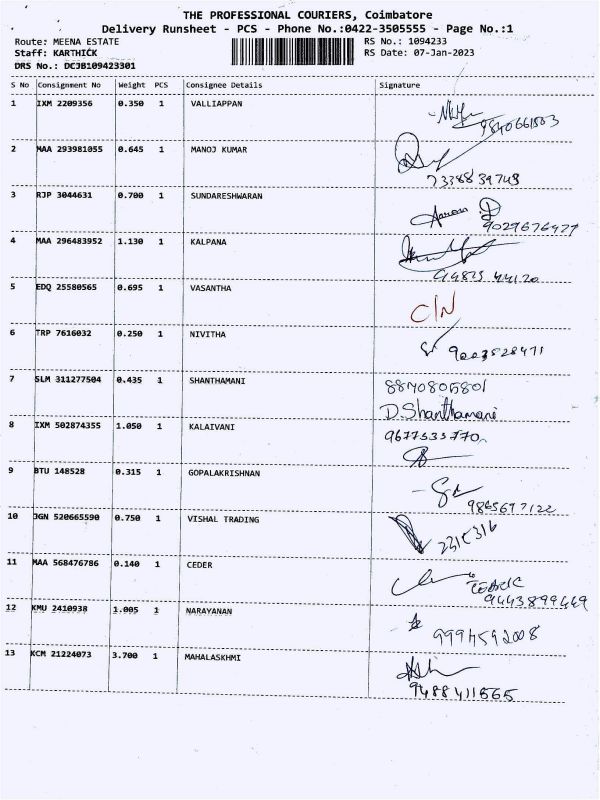 THE PROFESSIONAL COURIERS, Coimbatore
Delivery Runsheet - PCS - Phone No.:0422-3505555 - Page No.:1
Route: MEENA ESTATE
RS No.: 1094233
Staff: KARTHICK
RS Date: 07-Jan-2023
DRS No.: DCJB109423301
S No Consignment No Weight PCS Consignee Details Signature
1 IXM 2209356 0.350 1 VALLIAPPAN
2 MAA 293981055 0.645 1 MANOJ KUMAR
7338839743
3 RJP 3044631 0.700 1 SUNDARESHWARAN
9029676477
4 MAA 296483952 1.130 1 KALPANA
5 EDQ 25580565 0.695 1 VASANTHA
C/N
6 TRP 7616032 0.250 1 NIVITHA
9003528471
7 SLM 311277504 0.435 1 SHANTHAMANI 8870805801
D.Shanthamani
8 IXM 502874355 1.050 1 KALAIVANI 9677535770
9 BTU 148528 0.315 1 GOPALAKRISHNAN
9865697122
10 JGN 520665590 0.750 1 VISHAL TRADING
2315316
11 MAA 568476786 0.140 1 CEDER
9443899469
12 KMU 2410938 1.005 1 NARAYANAN
9994592008
13 KCM 21224073 3.700 1 MAHALASKHMI
9488411565